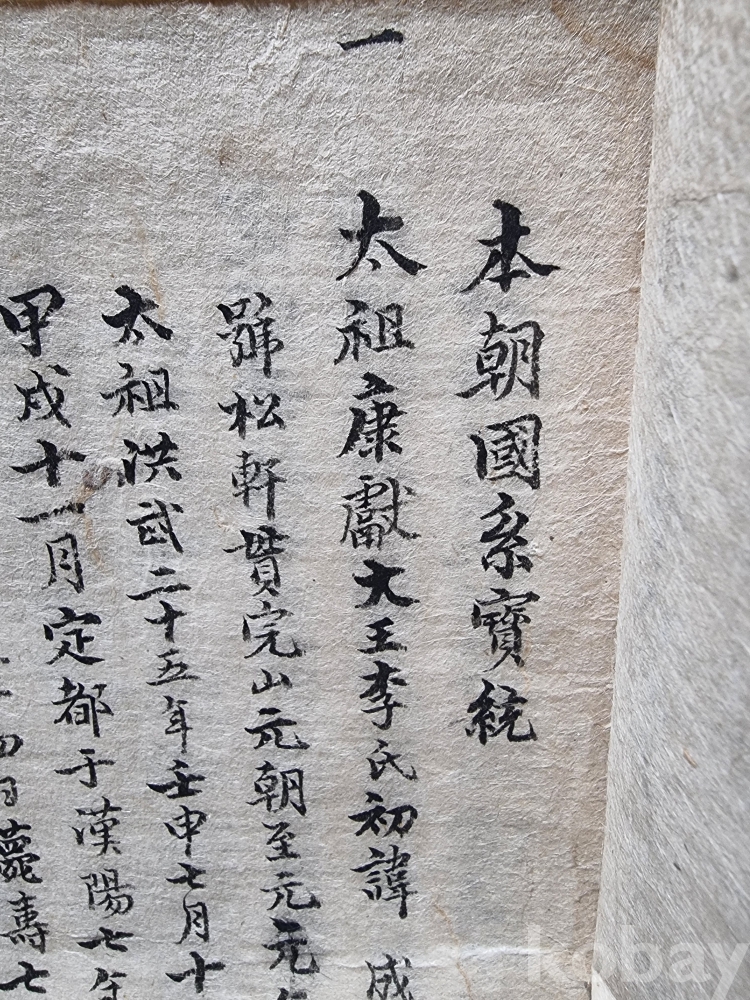 一
本朝國系寶統
太祖康獻大王李氏初諱 成
號松軒貫完山元朝至元元年
太祖洪武二十五年壬申七月十
甲戌十一月定都于漢陽七年
四月薨壽七
kobay